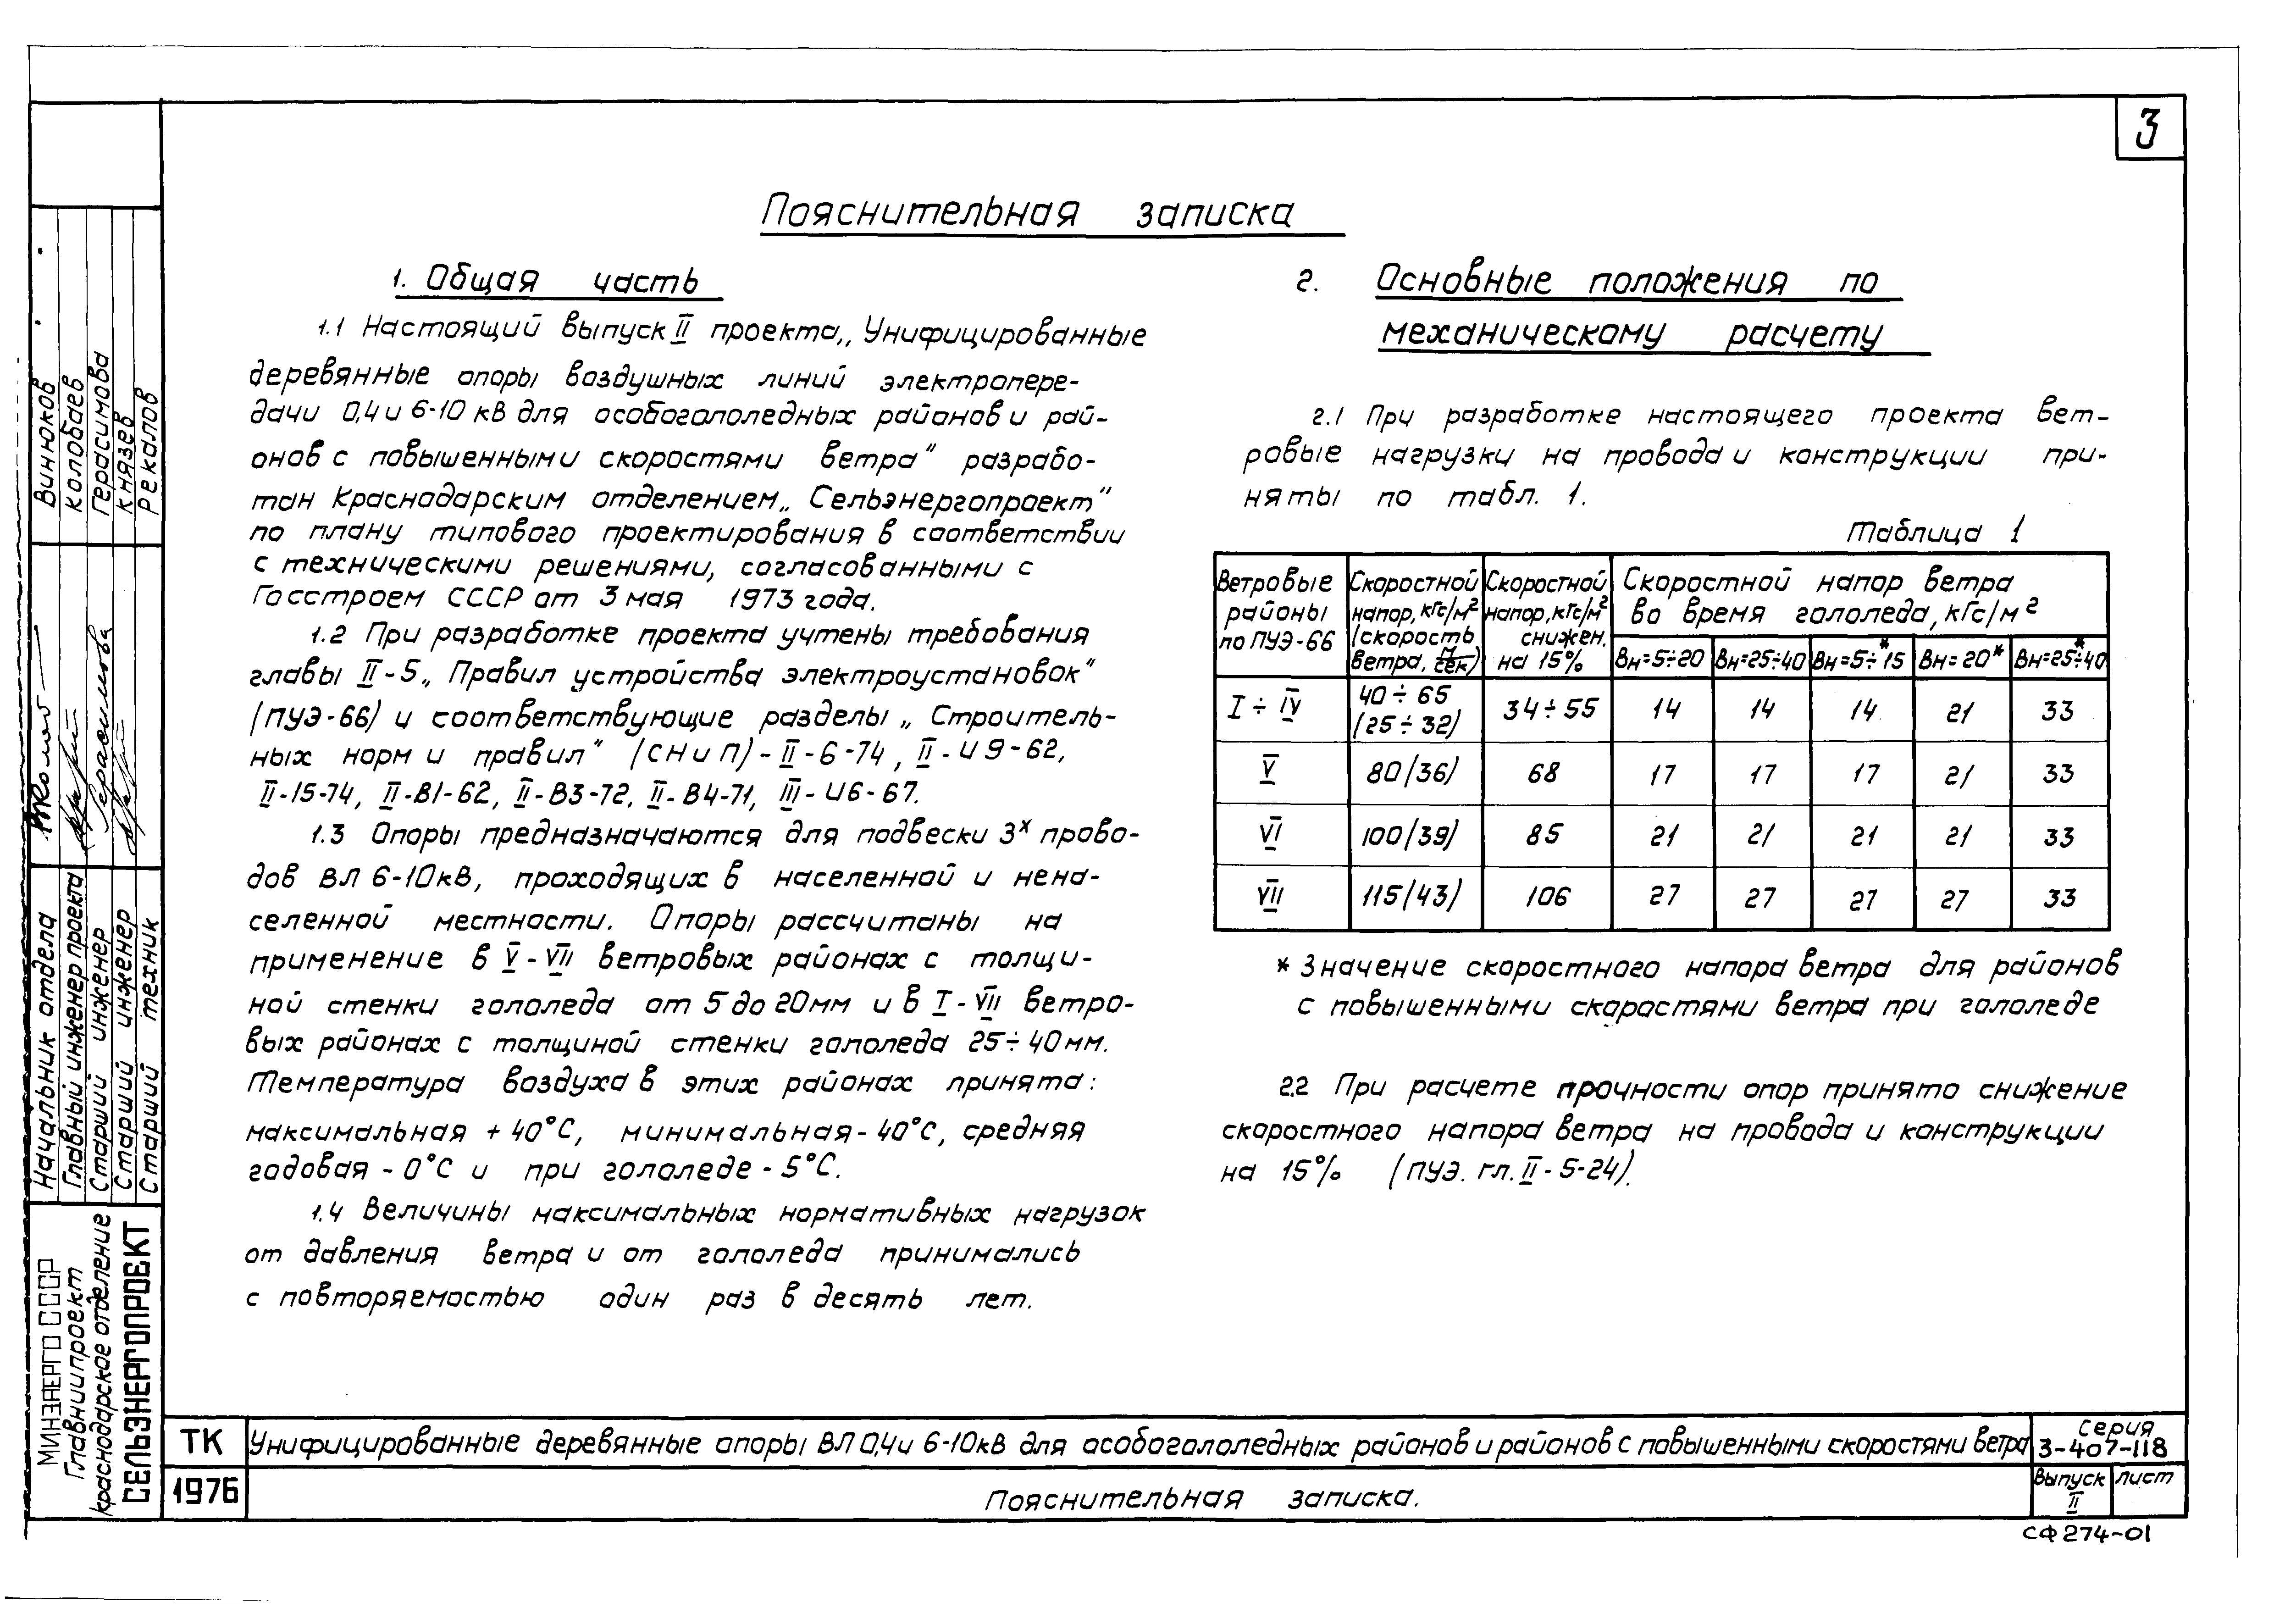 3
Пояснительная записка
1. Общая часть
1.1 Настоящий выпуск II проекта „Унифицированные
деревянные опоры воздушных линий электропере-
дачи 0,4 и 6-10 кВ для особогололедных районов и рай-
онов с повышенными скоростями ветра" разрабо-
тан Краснодарским отделением „Сельэнергопроект"
по плану типового проектирования в соответствии
с техническими решениями, согласованными с
Госстроем СССР от 3 мая 1973 года.
1.2 При разработке проекта учтены требования
главы II-5 „Правил устройства электроустановок"
(ПУЭ-66) и соответствующие разделы „Строитель-
ных норм и правил" (СНиП) - II-6-74, II-И9-62,
II-15-74, II-В1-62, II-В3-72, II-В4-71, III-И6-67.
1.3 Опоры предназначаются для подвески 3х прово-
дов ВЛ 6-10кВ, проходящих в населенной и нена-
селенной местности. Опоры рассчитаны на
применение в V-VII ветровых районах с толщи-
ной стенки гололеда от 5 до 20мм и в I-VII ветро-
вых районах с толщиной стенки гололеда 25÷40мм.
Температура воздуха в этих районах принята:
максимальная +40°С, минимальная-40°С, средняя
годовая - 0°С и при гололеде - 5°С.
1.4 Величины максимальных нормативных нагрузок
от давления ветра и от гололеда принимались
с повторяемостью один раз в десять лет.
2. Основные положения по
механическому расчету
2.1 При разработке настоящего проекта вет-
ровые нагрузки на провода и конструкции при-
няты по табл. 1.
Таблица 1
Ветровые районы по ПУЭ-66 | Скоростной напор, кГс/м² (скорость ветра, м/сек) | Скоростной напор, кГс/м² снижен. на 15% | Скоростной напор ветра во время гололеда, кГс/м²
Вн=5÷20 | Вн=25÷40 | Вн=5÷15* | Вн=20* | Вн=25÷40*
I÷IV | 40÷65 (25÷32) | 34÷55 | 14 | 14 | 14 | 21 | 33
V | 80(36) | 68 | 17 | 17 | 17 | 21 | 33
VI | 100(39) | 85 | 21 | 21 | 21 | 21 | 33
VII | 115(43) | 106 | 27 | 27 | 27 | 27 | 33
* Значение скоростного напора ветра для районов
с повышенными скоростями ветра при гололеде
2.2 При расчете прочности опор принято снижение
скоростного напора ветра на провода и конструкции
на 15% (ПУЭ. гл. II-5-24).
Винюков
Колобаев
Герасимова
Князев
Рекалов
Начальник отдела
Главный инженер проекта
Старший инженер
Старший инженер
Старший техник
МИНЭНЕРГО СССР
Главниипроект
Краснодарское отделение
СЕЛЬЭНЕРГОПРОЕКТ
ТК
1976
Унифицированные деревянные опоры ВЛ 0,4 и 6-10кВ для особогололедных районов и районов с повышенными скоростями ветра
Пояснительная записка.
Серия
3-407-118
Выпуск
II
лист
СФ 274-01